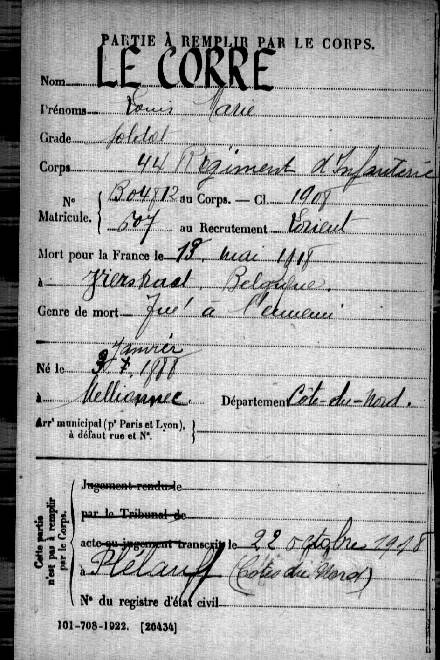 PARTIE À REMPLIR PAR LE CORPS.
Nom LE CORRE
Prénoms Louis Marie
Grade soldat
Corps 44 Régiment d'Infanterie
N° Matricule. { B04812 au Corps. — Cl. 1908
507 au Recrutement Lorient
Mort pour la France le 13 mai 1918
à Vierstraat. Belgique.
Genre de mort Tué à l'ennemi
Janvier
Né le 3 1888
à Mellionnec. Département Côte-du-Nord.
Arrt municipal (pr Paris et Lyon), à défaut rue et N°.
Cette partie n'est pas à remplir par le Corps.
Jugement rendu le
par le Tribunal de
acte ou jugement transcrit le 22 octobre 1918
à Plélauff (Côtes du Nord)
N° du registre d'état civil
101-708-1922. [26434]